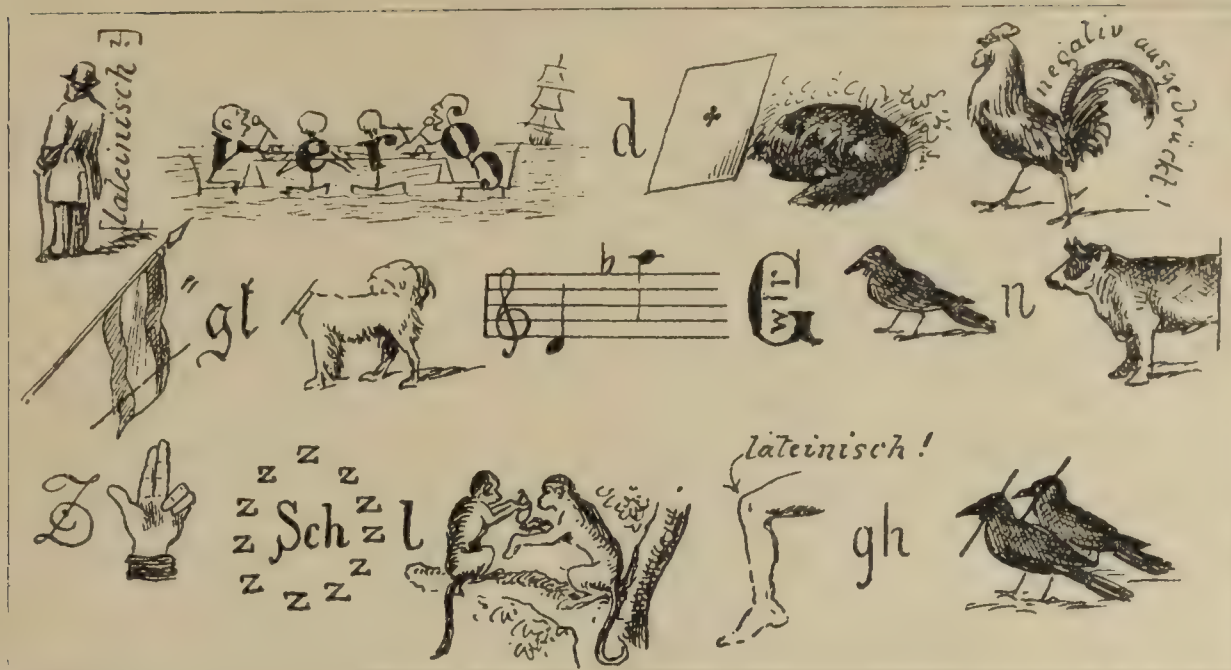 [lateinisch?]
d
negativ ausgedrückt!
"gt
G wir
n
Z
z z z z z z z z z z z
Sch
l
lateinisch!
gh